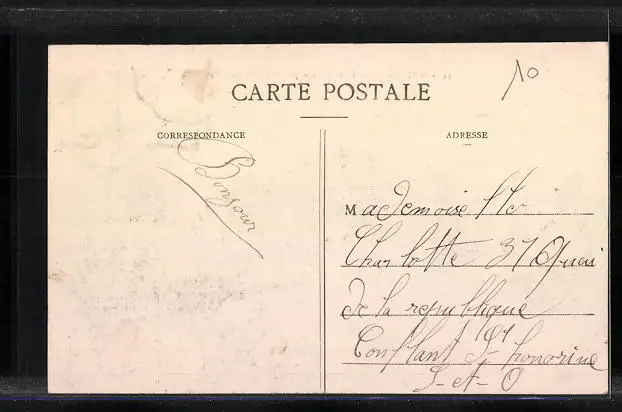 10
CARTE POSTALE
CORRESPONDANCE
ADRESSE
Bonjour
Mademoiselle
Charlotte 37 Quai
de la republique
Conflant St honorine
S-et-O